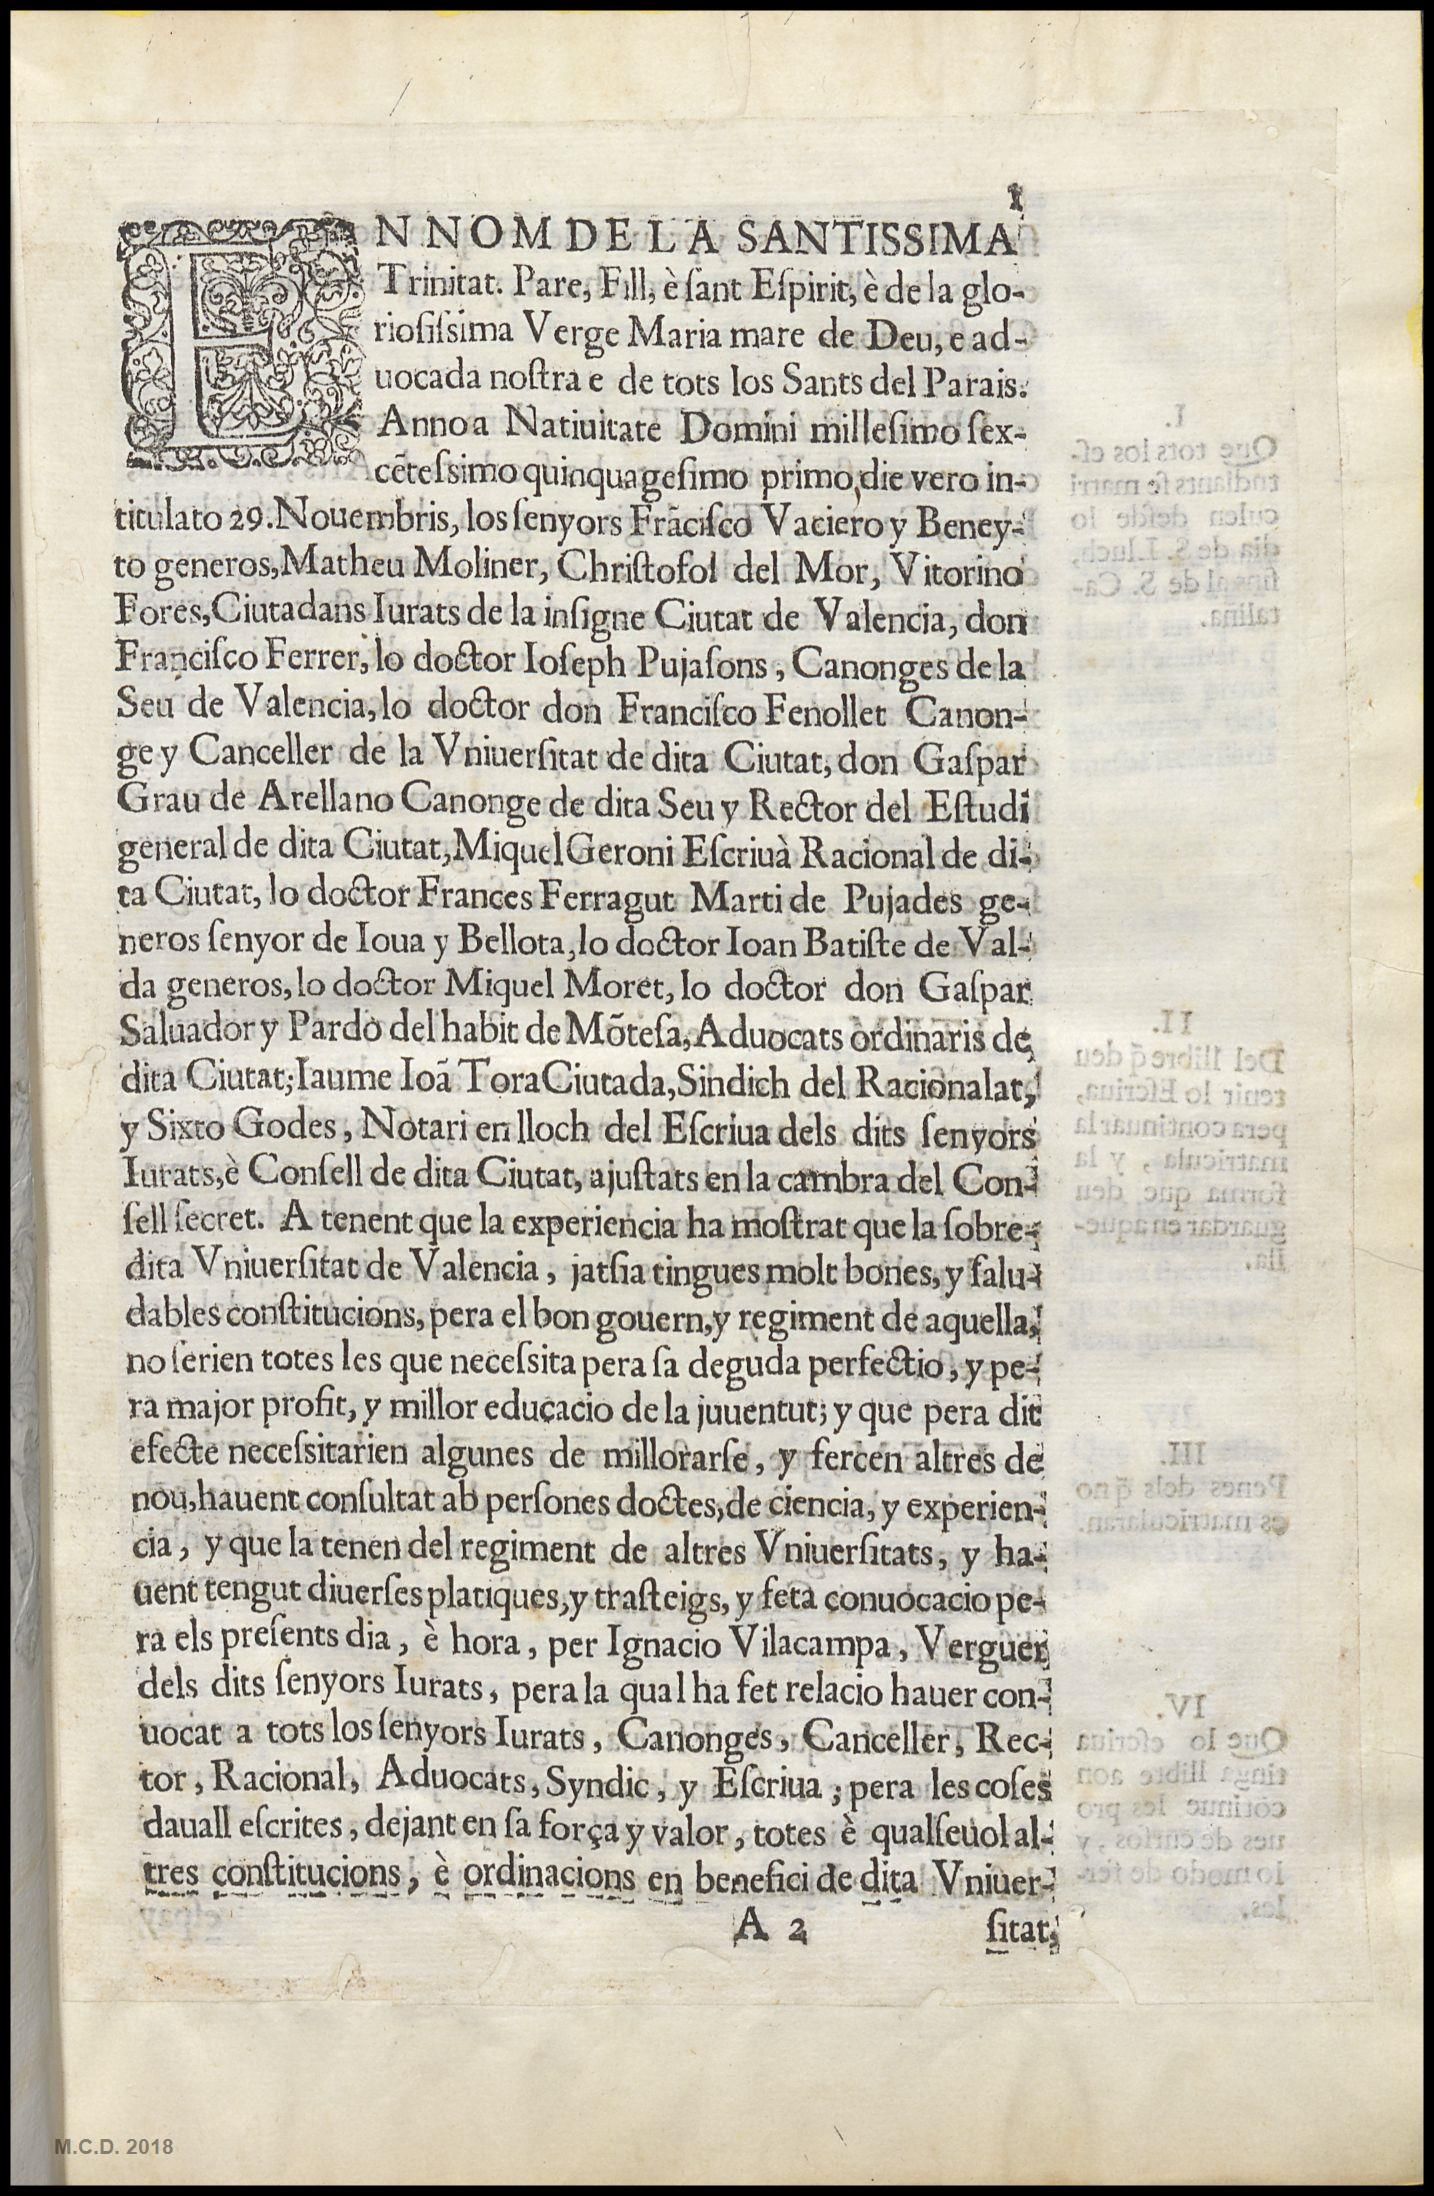 1
EN NOM DE LA SANTISSIMA
Trinitat. Pare, Fill, è ſant Eſpirit, è de la glo-
rioſiſsima Verge Maria mare de Deu, e ad-
uocada noſtra e de tots los Sants del Parais.
Anno a Natiuitate Domini milleſimo ſex-
cẽteſsimo quinquageſimo primo, die vero in-
titulato 29. Nouembris, los ſenyors Frãciſco Vaciero y Beney-
to generos, Matheu Moliner, Chriſtofol del Mor, Vitorino
Fores, Ciutadans Iurats de la inſigne Ciutat de Valencia, don
Franciſco Ferrer, lo doctor Ioſeph Pujaſons, Canonges de la
Seu de Valencia, lo doctor don Franciſco Fenollet Canon-
ge y Canceller de la Vniuerſitat de dita Ciutat, don Gaſpar
Grau de Arellano Canonge de dita Seu y Rector del Eſtudi
general de dita Ciutat, Miquel Geroni Eſcriuà Racional de di-
ta Ciutat, lo doctor Frances Ferragut Marti de Pujades ge-
neros ſenyor de Ioua y Bellota, lo doctor Ioan Batiſte de Val-
da generos, lo doctor Miquel Moret, lo doctor don Gaſpar
Saluador y Pardo del habit de Mõteſa, Aduocats ordinaris de
dita Ciutat; Iaume Ioã Tora Ciutada, Sindich del Racionalat,
y Sixto Godes, Notari en lloch del Eſcriua dels dits ſenyors
Iurats, è Conſell de dita Ciutat, ajuſtats en la cambra del Con-
ſell ſecret. A tenent que la experiencia ha moſtrat que la ſobre-
dita Vniuerſitat de Valencia, jatſia tingues molt bones, y ſalu-
dables conſtitucions, pera el bon gouern, y regiment de aquella,
no ſerien totes les que neceſsita pera ſa deguda perfectio, y pe-
ra major profit, y millor educacio de la juuentut; y que pera dit
efecte neceſsitarien algunes de millorarſe, y fercen altres de
nou, hauent conſultat ab perſones doctes, de ciencia, y experien-
cia, y que la tenen del regiment de altres Vniuerſitats, y ha-
uent tengut diuerſes platiques, y traſteigs, y feta conuocacio pe-
ra els preſents dia, è hora, per Ignacio Vilacampa, Verguer
dels dits ſenyors Iurats, pera la qual ha fet relacio hauer con-
uocat a tots los ſenyors Iurats, Canonges, Canceller, Rec-
tor, Racional, Aduocats, Syndic, y Eſcriua; pera les coſes
dauall eſcrites, dejant en ſa força y valor, totes è qualſeuol al-
tres conſtitucions, è ordinacions en benefici de dita Vniuer-
A 2 ſitat,
M.C.D. 2018